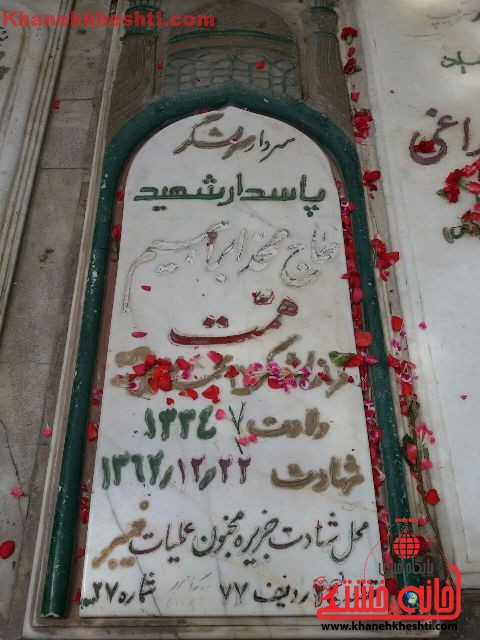 Khanehkheshti.com
سردار سرلشگر
پاسدار شهید
حاج محمد ابراهیم
همت
ولادت ۱۳۳۴
شهادت ۱۳۶۲/۱۲/۲۲
محل شهادت جزیره مجنون عملیات خیبر
ردیف ۷۷ شماره ۲۷
خانه خشتی
www.khanehkheshti.com